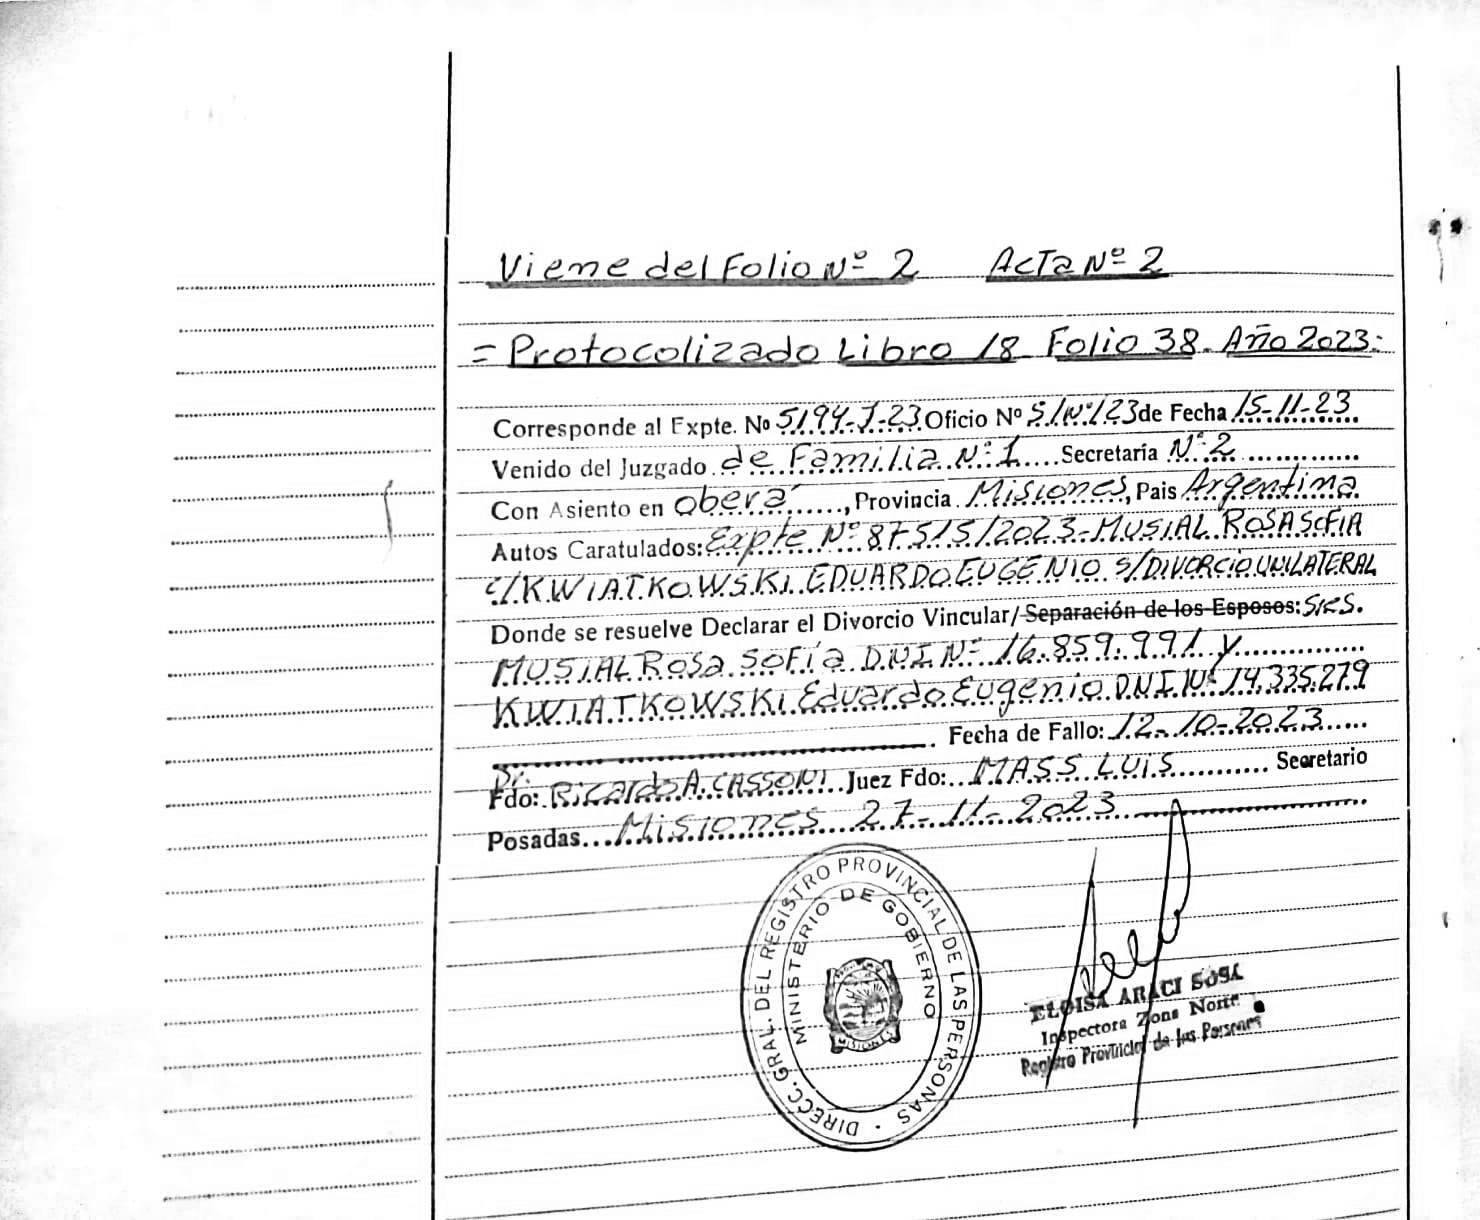 Viene del Folio Nº 2 Acta Nº 2
= Protocolizado Libro 18 Folio 38. Año 2023:
Corresponde al Expte. Nº 5194-J-23 Oficio Nº S/Nº/23 de Fecha 15-11-23
Venido del Juzgado de Familia Nº 1 Secretaría Nº 2
Con Asiento en Oberá, Provincia Misiones, Pais Argentina
Autos Caratulados: Expte Nº 87515/2023-MUSIAL ROSA SOFIA
c/KWIATKOWSKI EDUARDO EUGENIO s/DIVORCIO UNILATERAL
Donde se resuelve Declarar el Divorcio Vincular/Separación de los Esposos: Sres.
MUSIAL Rosa Sofía D.N.I. Nº 16.859.991 y
KWIATKOWSKI Eduardo Eugenio D.N.I. Nº 14.335.279
Fecha de Fallo: 12-10-2023
Dr.
Fdo: Ricardo A. CASSONI Juez Fdo: MASS LUIS Secretario
Posadas Misiones 27-11-2023
DIRECC. GRAL. DEL REGISTRO PROVINCIAL DE LAS PERSONAS
MINISTERIO DE GOBIERNO
MISIONES
ELOISA ARACI SOSA
Inspectora Zona Norte
Registro Provincial de las Personas